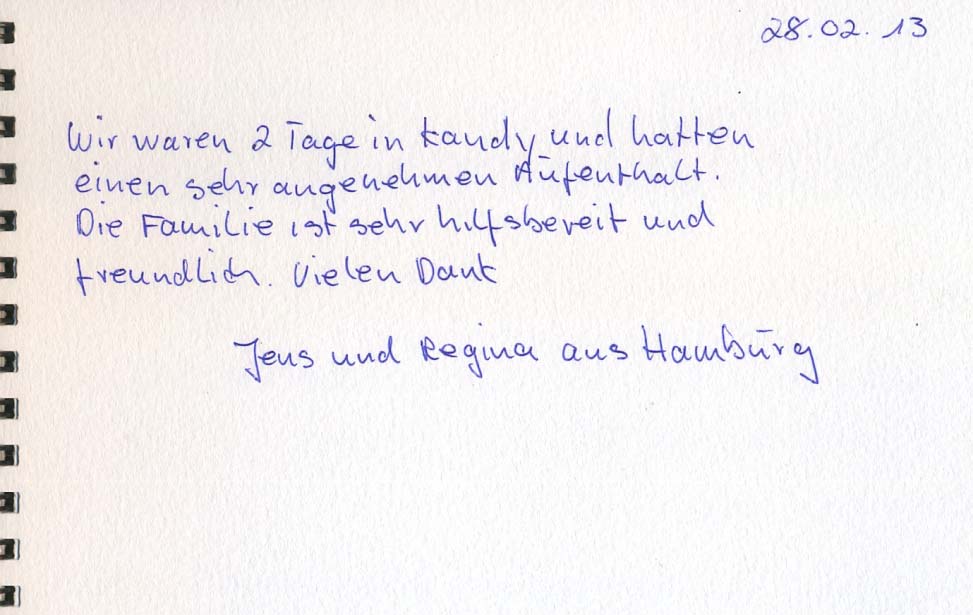 28.02.13
Wir waren 2 Tage in Kandy und hatten
einen sehr angenehmen Aufenthalt.
Die Familie ist sehr hilfsbereit und
freundlich. Vielen Dank
Jens und Regina aus Hamburg